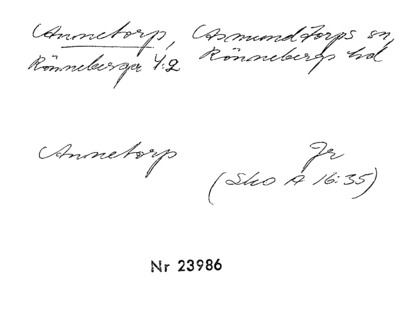 Annetorp, Asmundtorps sn,
Rönneberga 4:2 Rönnebergs hd
Annetorp Jr
(Sko A 16:35)
Nr 23986